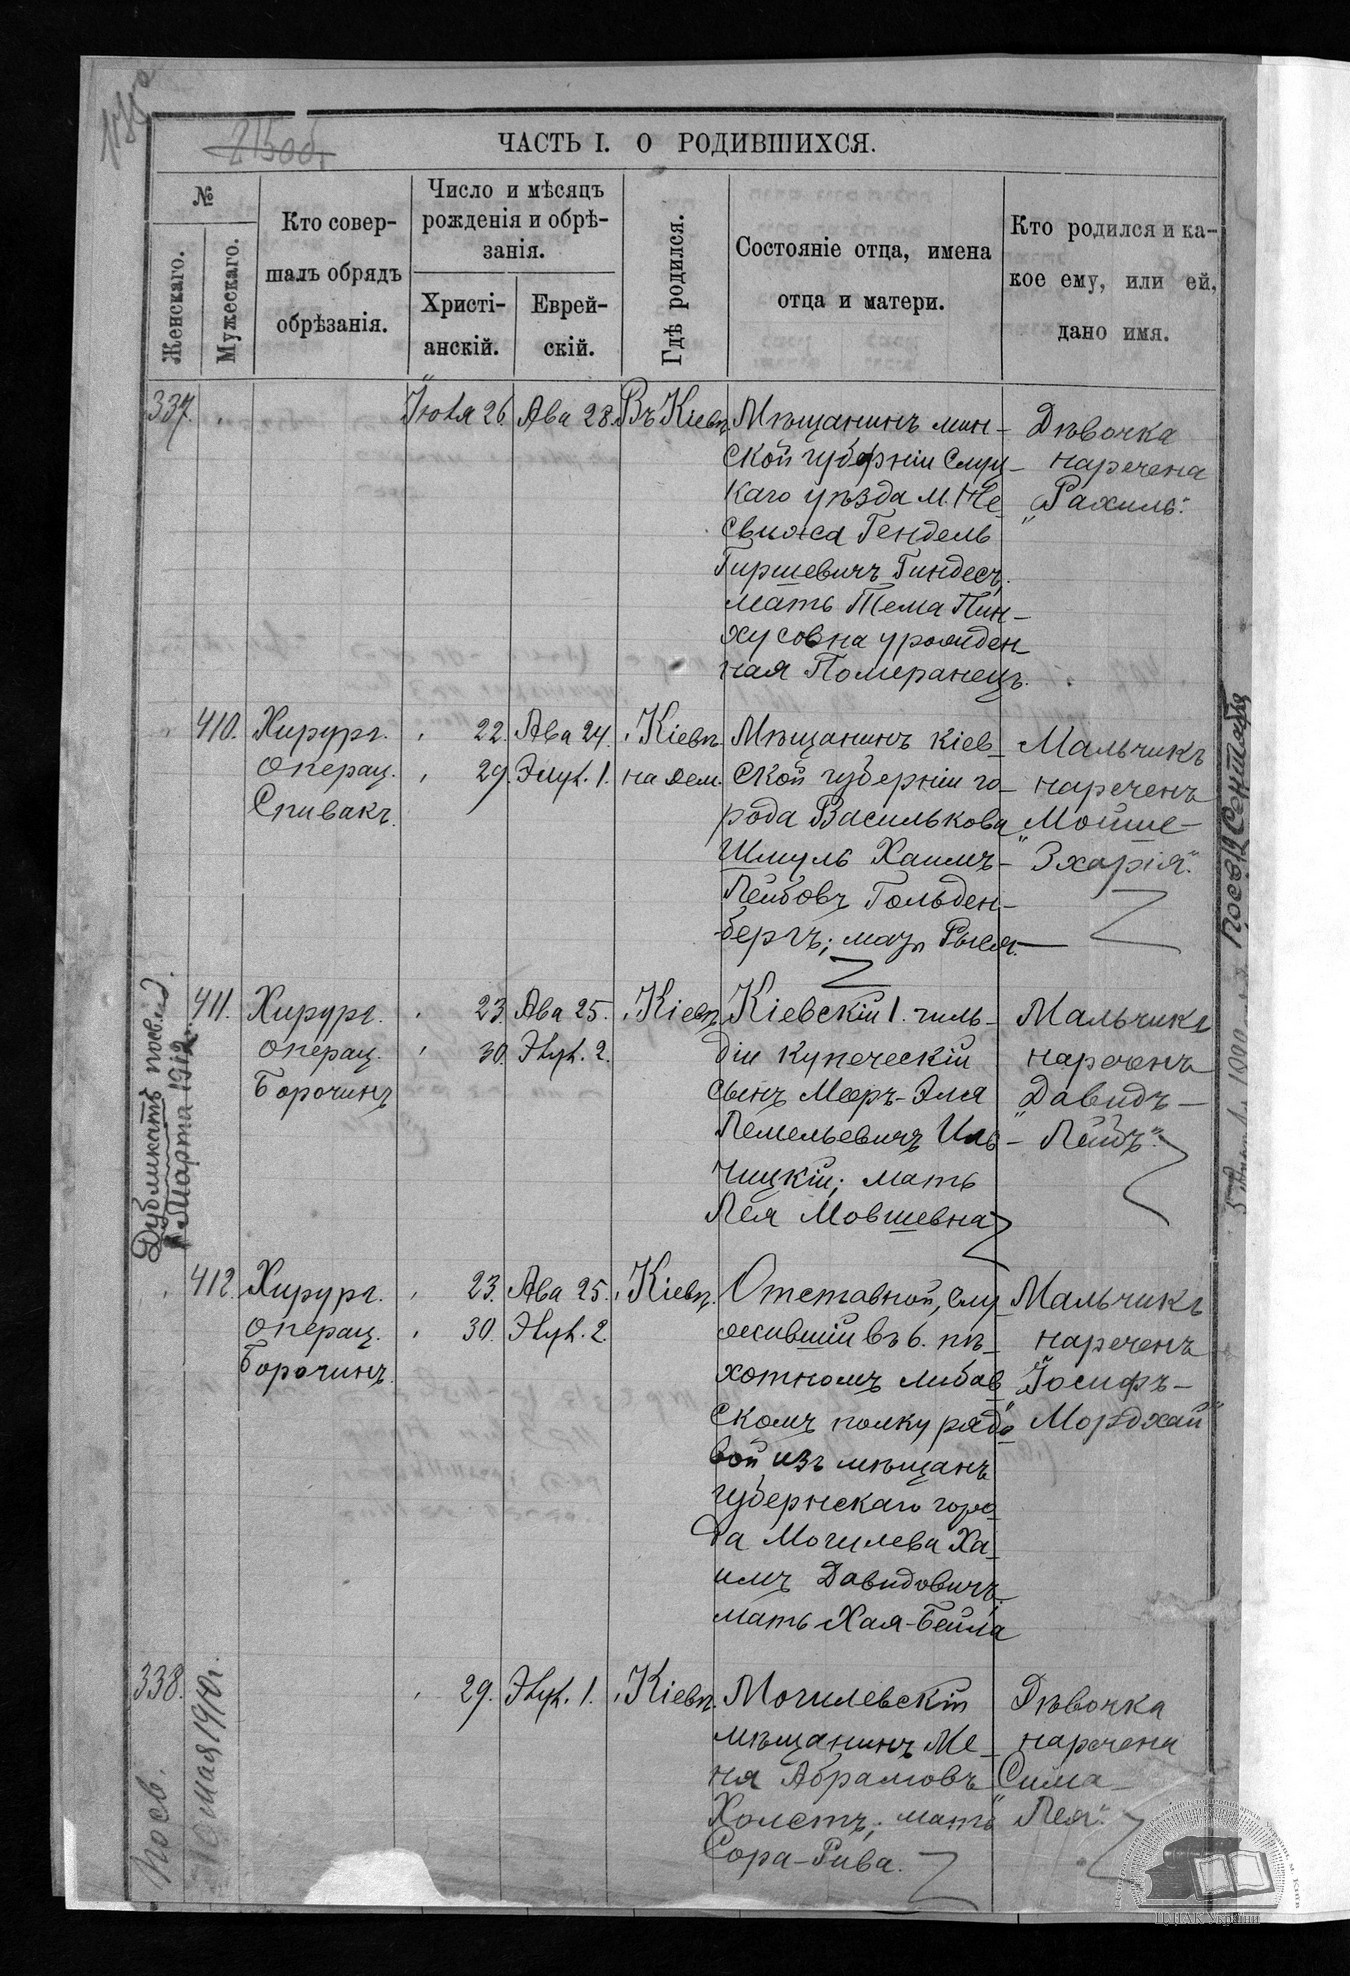 215 об.
ЧАСТЬ I. О РОДИВШИХСЯ.
№
Женскаго.
Мужескаго.
Кто совер-
шалъ обрядъ
обрѣзанія.
Число и мѣсяцъ
рожденія и обрѣ-
занія.
Христі-
анскій.
Еврей-
скій.
Гдѣ родился.
Состояніе отца, имена
отца и матери.
Кто родился и ка-
кое ему, или ей,
дано имя.
337.
Іюля 26
Ава 28.
Въ Кіевѣ
Мѣщанинъ мин-
ской губерніи Слуц-
каго уѣзда м. Не-
свижа Гендель
Гиршевичъ Гиндесъ,
мать Тема Пин-
хусовна урожден-
ная Померанецъ.
Дѣвочка
наречена
„Рахиль“.
410.
Хирург.
операц.
Спивакъ.
22.
29.
Ава 24.
Элул. 1.
Кіевѣ
на Дем.
Мѣщанинъ кіев-
ской губерніи го-
рода Василькова
Шмуль Хаимъ-
Лейбовъ Гольден-
бергъ; мать Рыся.
Мальчикъ
нареченъ
Мойше-
„Зхарія“.
411.
Хирург.
операц.
Борочинъ
23.
30.
Ава 25.
Элул. 2.
Кіевѣ
Кіевскій 1. гиль-
діи купеческій
сынъ Мееръ-Эля
Лемельевичъ Иль-
чицкій; мать
Лея Мовшевна
Мальчикъ
нареченъ
Давидъ-
„Лейбъ“.
Дубликатъ посвид.
Марта 1912
412.
Хирург.
операц.
Борочинъ.
23.
30.
Ава 25.
Элул. 2.
Кіевѣ.
Отставной, слу
жившій въ 6. пѣ-
хотномъ либав-
скомъ полку рядо-
вой изъ мѣщанъ
губернскаго горо-
да Могилева Ха-
имъ Давидовичъ,
мать Хая-Бейла
Мальчикъ
нареченъ
Іосифъ-
„Мордхай“
338.
29.
Элул. 1.
Кіевѣ.
Могилевскій
мѣщанинъ Ме-
ня Абрамовъ
Холстъ; мать
Сора-Рива.
Дѣвочка
наречена
Сима-
„Лея“.
Посв.
10 мая 1910 г.
Посв 12 Сентября
ЦДІАК України